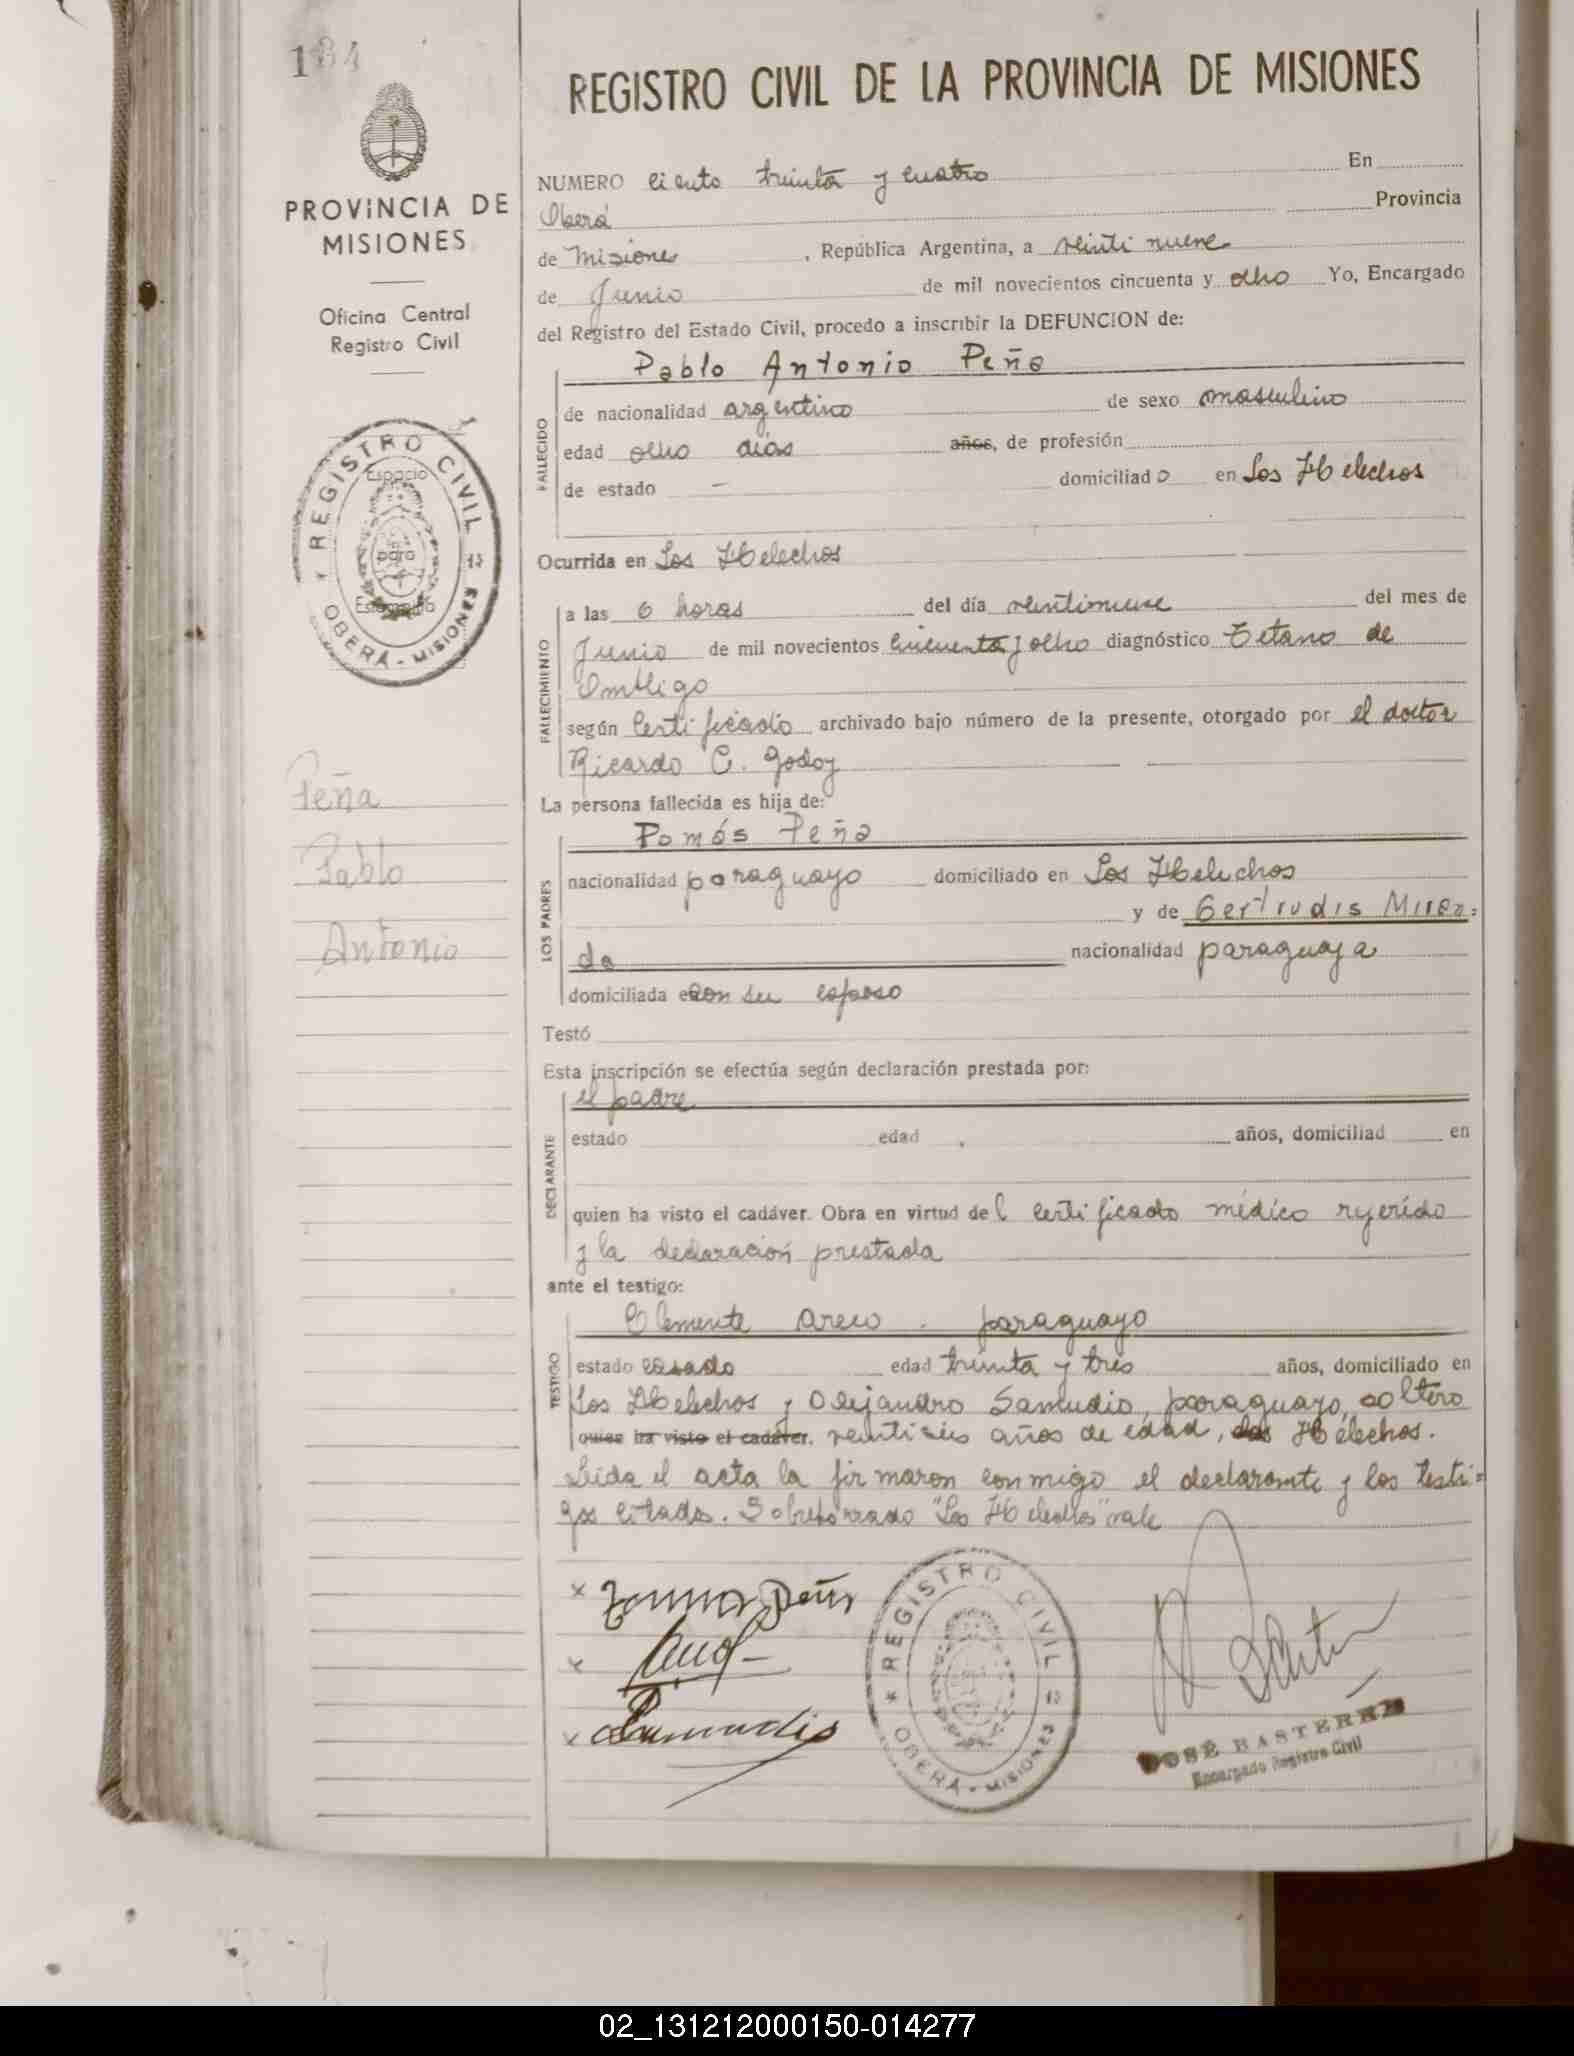 134
REGISTRO CIVIL DE LA PROVINCIA DE MISIONES
PROVINCIA DE
MISIONES
Oficina Central
Registro Civil
REGISTRO CIVIL
Espacio
para
Estampilla
13
OBERÁ - MISIONES
Peña
Pablo
Antonio
NUMERO ciento treinta y cuatro En
Oberá Provincia
de Misiones, República Argentina, a veintinueve
de Junio de mil novecientos cincuenta y ocho Yo, Encargado
del Registro del Estado Civil, procedo a inscribir la DEFUNCION de:
Pablo Antonio Peña
FALLECIDO
de nacionalidad argentino de sexo masculino
edad ocho días años, de profesión
de estado — domiciliado en Los Helechos
Ocurrida en Los Helechos
FALLECIMIENTO
a las 6 horas del día veintinueve del mes de
Junio de mil novecientos cincuenta y ocho diagnóstico Tetano de
Ombligo
según certificado archivado bajo número de la presente, otorgado por el doctor
Ricardo C. Godoy
La persona fallecida es hija de:
LOS PADRES
Tomás Peña
nacionalidad paraguayo domiciliado en Los Helechos
y de Gertrudis Miran=
da nacionalidad paraguaya
domiciliada en con su esposo
Testó
Esta inscripción se efectúa según declaración prestada por:
DECLARANTE
el padre
estado edad años, domiciliad en
quien ha visto el cadáver. Obra en virtud del certificado médico referido
y la declaración prestada
ante el testigo:
TESTIGO
Clemente Areco. paraguayo
estado casado edad treinta y tres años, domiciliado en
Los Helechos y Alejandro Samudio, paraguayo, soltero
quien ha visto el cadáver. veintiseis años de edad, Los Helechos.
Leida el acta la firmaron conmigo el declarante y los testi=
gos citados. Sobreborrado "Los Helechos" vale
x Tomas Peña
x
x Samudio
REGISTRO CIVIL
13
OBERÁ - MISIONES
JOSÉ BASTERRA
Encargado Registro Civil
02_131212000150-014277